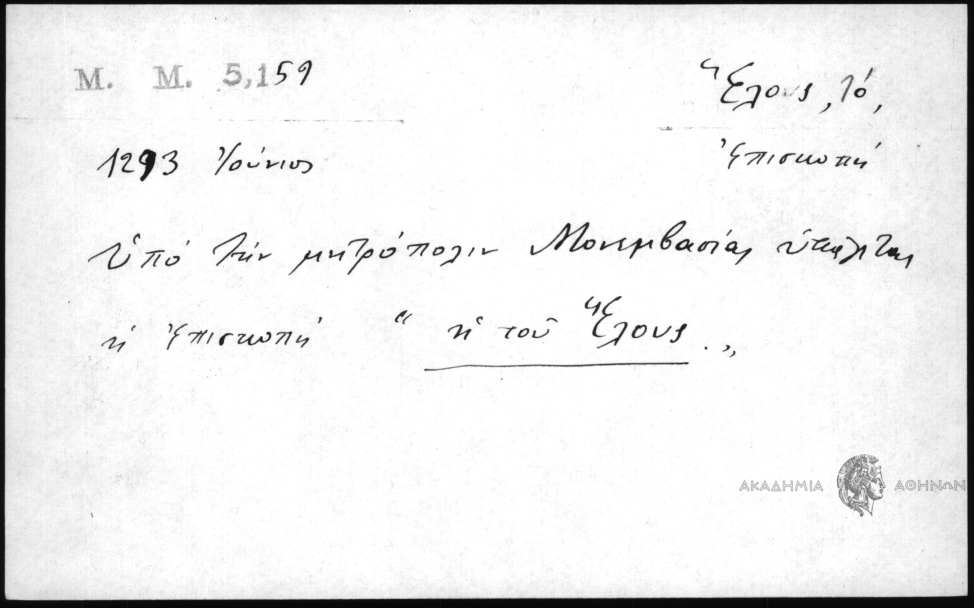 Μ. Μ. 5,159
Ἕλους, τό,
1293 Ἰούνιος
Ἐπισκοπή
Ὑπό τήν μητρόπολιν Μονεμβασίας
ἡ Ἐπισκοπή " ἡ τοῦ Ἕλους . „
ΑΚΑΔΗΜΙΑ ΑΘΗΝΩΝ